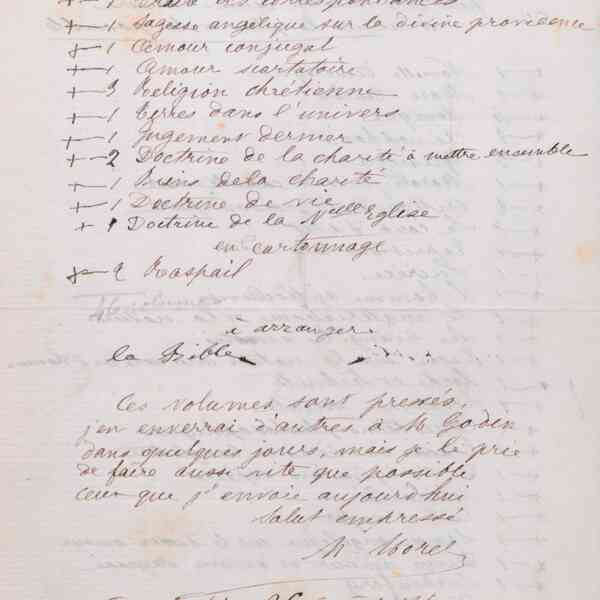 + 1 Traité des correspondances
+ 1 Sagesse angélique sur la divine providence
+ 1 Amour conjugal
+ 1 Amour scortatoire
+ 3 Religion chrétienne
+ 1 Terres dans l'univers
+ 1 Jugement dernier
+ 2 Doctrine de la charité à mettre ensemble
+ 1 Biens de la charité
+ 1 Doctrine de vie
+ 1 Doctrine de la Nlle Eglise
en cartonnage
+ 2 Raspail
à arranger
la Bible
Ces volumes sont pressés,
j'en enverrai d'autres à M Godin
dans quelques jours, mais je le prie
de faire aussi vite que possible
ceux que j'envoie aujourd'hui
Salut empressé